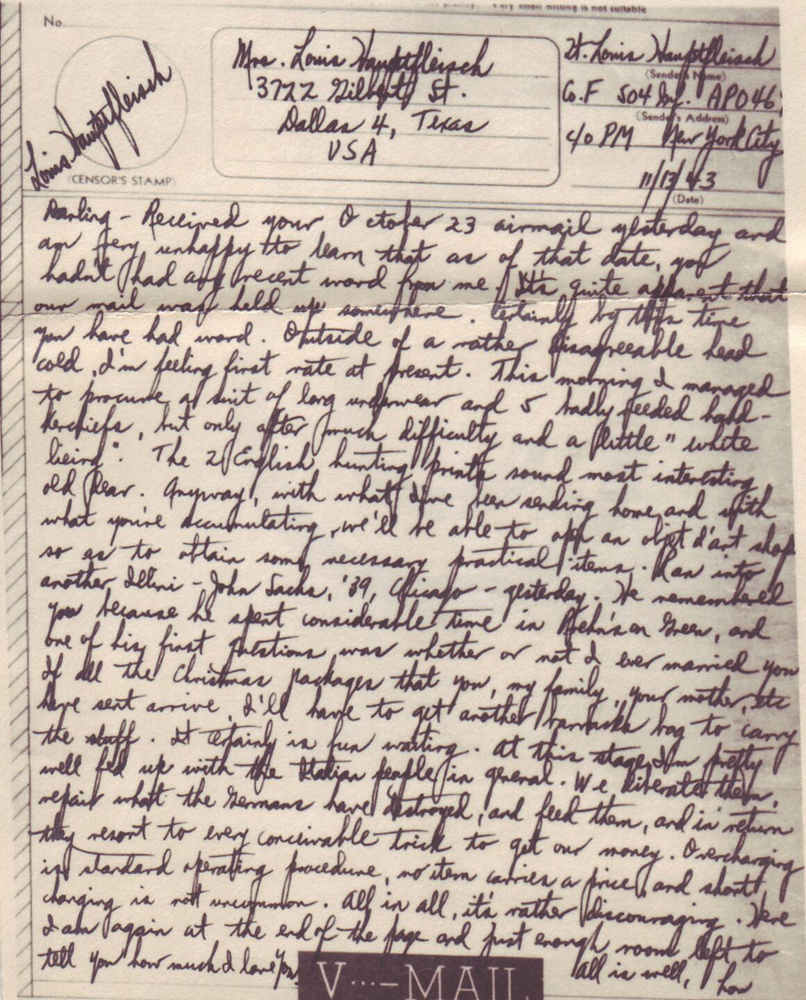 very small writing is not suitable
No.
Louis Hauptfleisch
(CENSOR'S STAMP)
Mrs. Louis Hauptfleisch
3722 Gilbert St.
Dallas 4, Texas
USA
Lt. Louis Hauptfleisch
(Sender's Name)
Co. F 504 Inf. APO 469
(Sender's Address)
c/o PM New York City
11/13/43
(Date)
Darling – Received your October 23 airmail yesterday and
am very unhappy to learn that as of that date, you
hadn't had any recent word from me. It's quite apparent that
our mail was held up somewhere. Certainly by this time
you have had word. Outside of a rather disagreeable head
cold, I'm feeling first rate at present. This morning I managed
to procure a suit of long underwear and 5 badly needed hand-
kerchiefs, but only after much difficulty and a little "white
lieing". The 2 English hunting prints sound most interesting,
old dear. Anyway, with what I've been sending home, and with
what you're accumulating, we'll be able to open an objet d'art shop
so as to obtain some necessary practical items. Ran into
another Illini – John Sachs, '39, Chicago – yesterday. He remembered
you because he spent considerable time in Prehn's on Green, and
one of his first questions was whether or not I ever married you
If all the Christmas packages that you, my family, your mother, etc
have sent arrive, I'll have to get another barracks bag to carry
the stuff. It certainly is fun waiting. At this stage, I'm pretty
well fed up with the Italian people in general. We liberate them,
repair what the Germans have destroyed, and feed them, and in return
they resort to every conceivable trick to get our money. Overcharging
is standard operating procedure, no item carries a price, and short
changing is not uncommon. All in all, it's rather discouraging. Here
I am again at the end of the page and just enough room left to
tell you how much I love you.
All is well, how
V···–MAIL